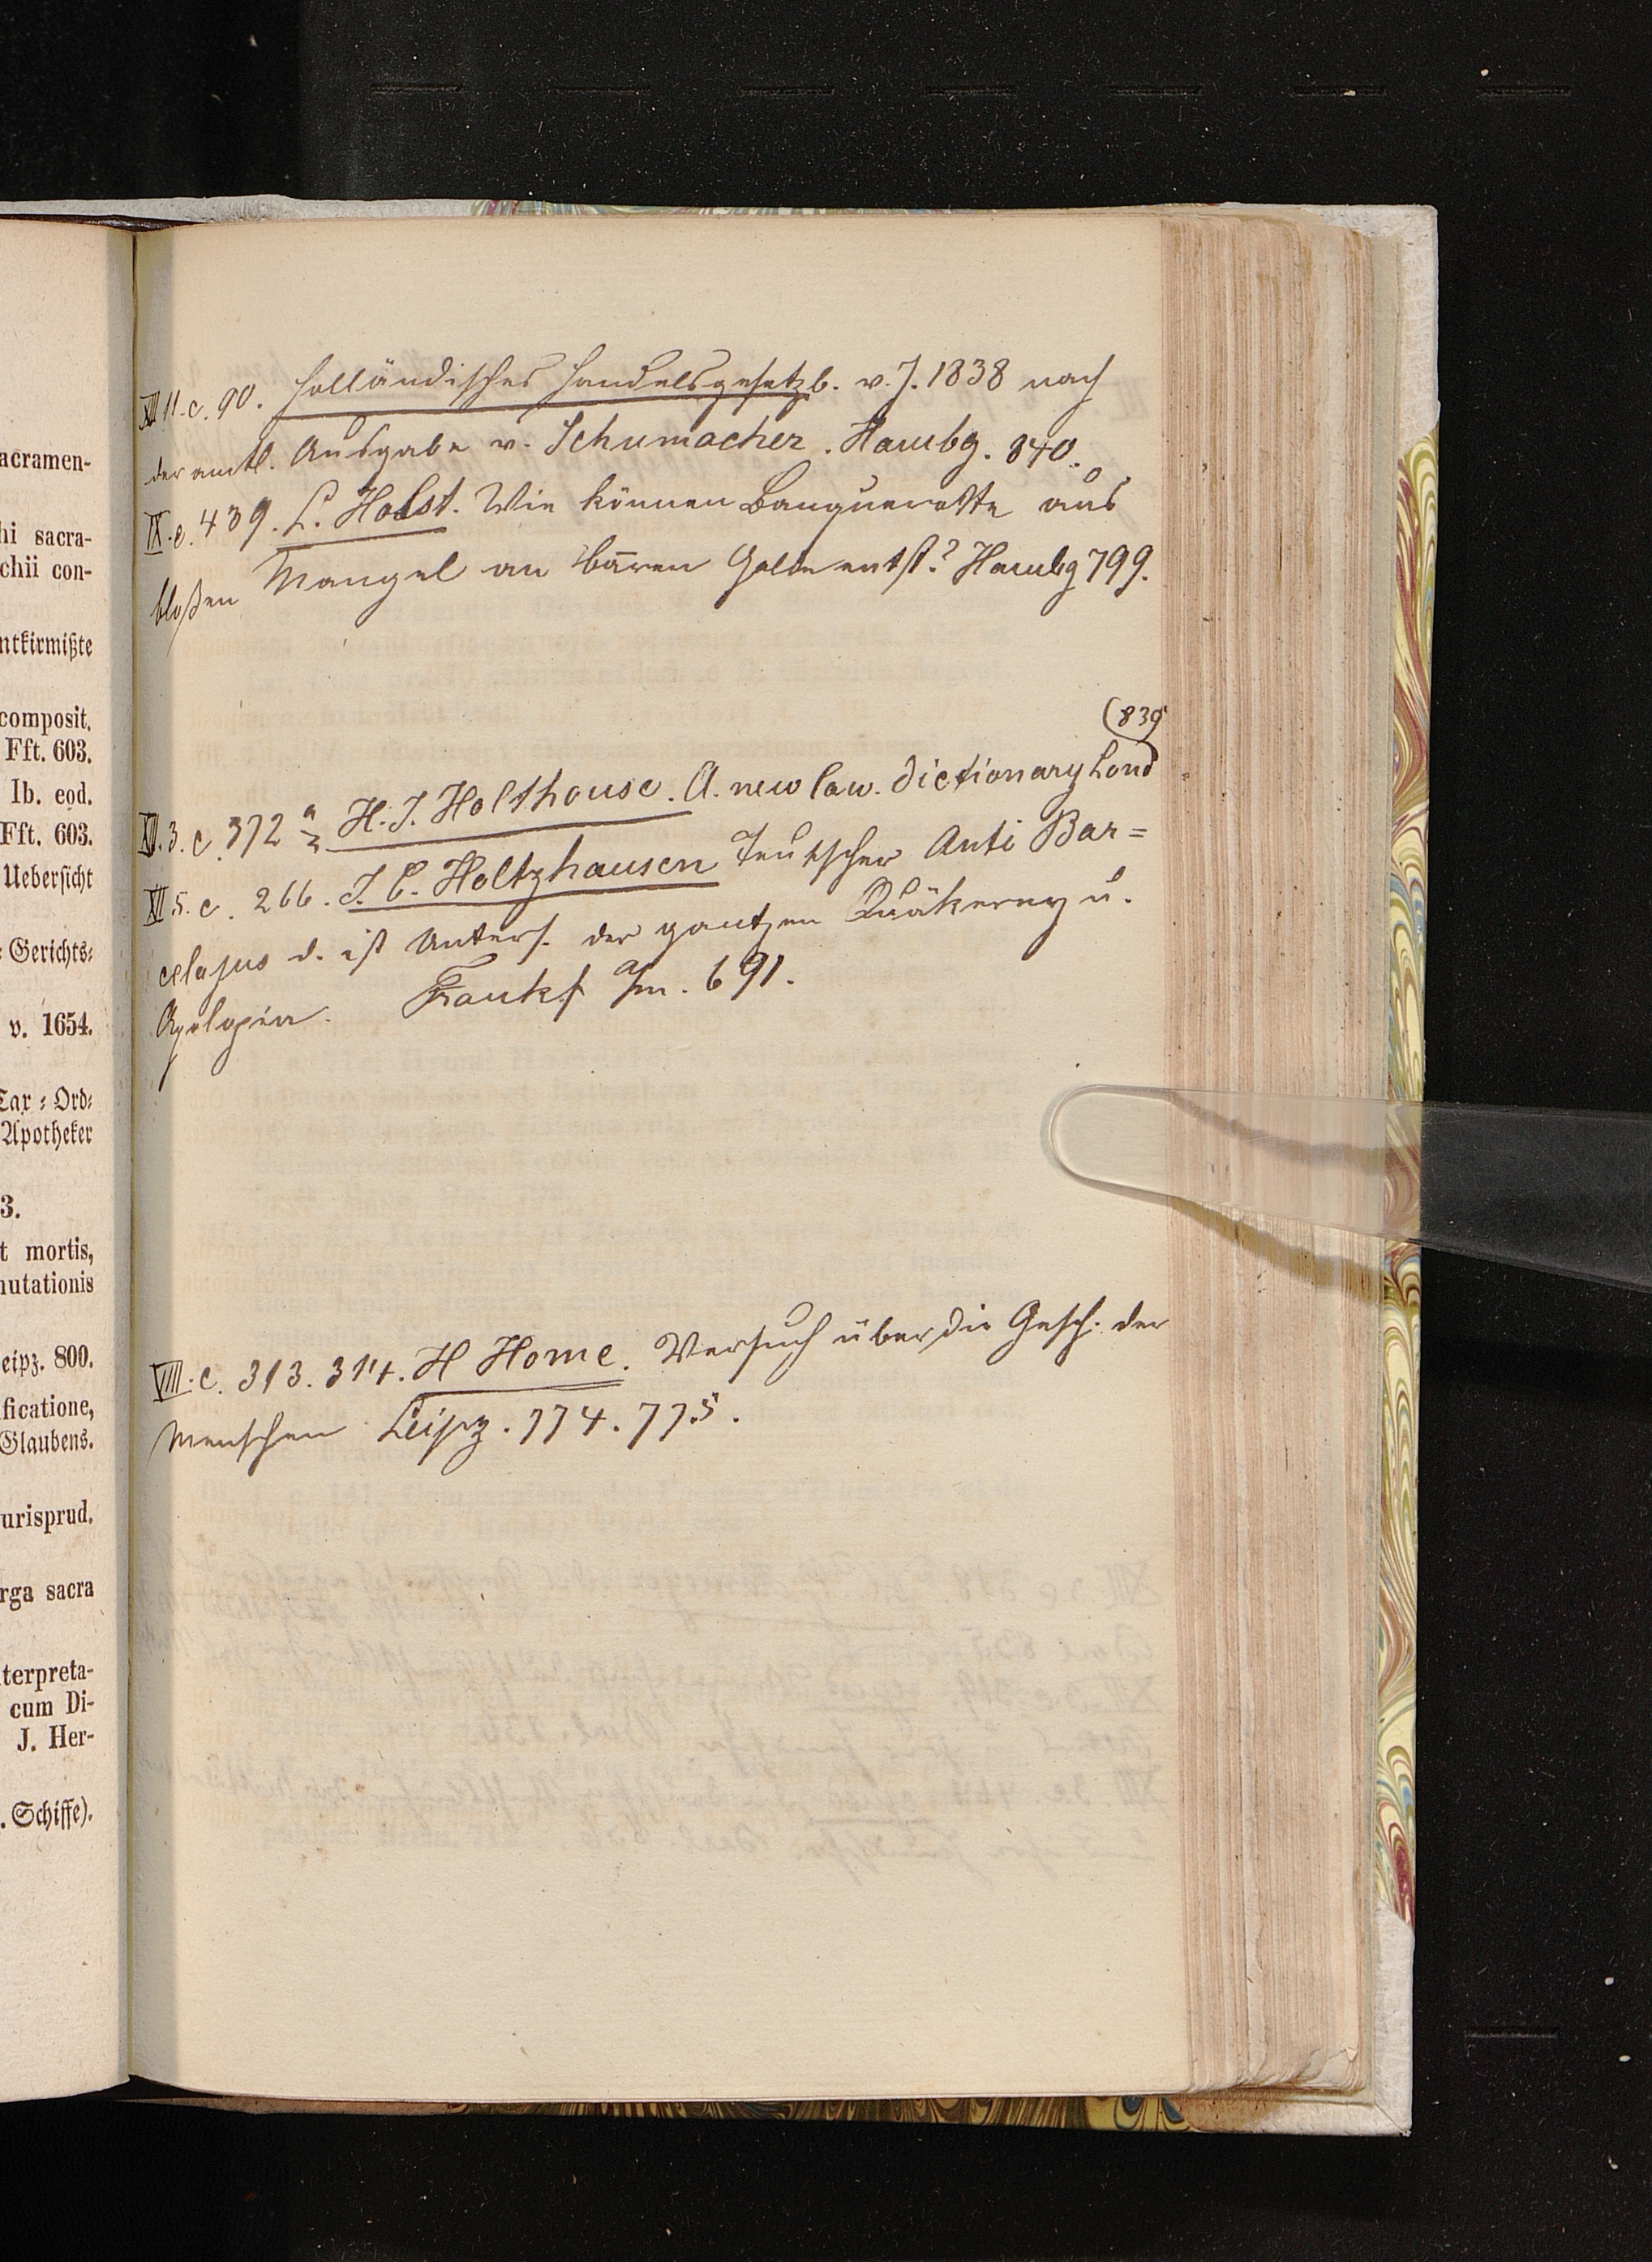 acramen-
hi sacra-
chii con-
ntkirmißte
composit.
Fft. 603.
Ib. eod.
Fft. 603.
Uebersicht
Gerichts-
v. 1654.
Tax-Ord-
Apotheker
3.
t mortis,
nutationis
eipz. 800.
ficatione,
Glaubens.
urisprud.
rga sacra
terpreta-
cum Di-
J. Her-
. Schiffe).
XIII 11. c. 90. Holländisches Handelsgesetzb. v. J. 1838 nach
der amtl. Ausgabe v. Schumacher. Hambg. 840.
IX. e. 439. L. Holst. Wie können Banquerotte aus
bloßen Mangel an baren Gelde entst.? Hambg 799.
(839
XII. 3. c. 372 a H. J. Holthouse. A. new law. dictionary Lond
XII 5. c. 266. J. C. Holtzhausen Teutscher Anti Bar=
celajus d. ist Unters. der gantzen Quäkerey u.
Apologia. Frankf a/m. 691.
VIII. c. 313. 314. H Home. Versuch über die Gesch. der
Menschen Leipz. 774. 775.